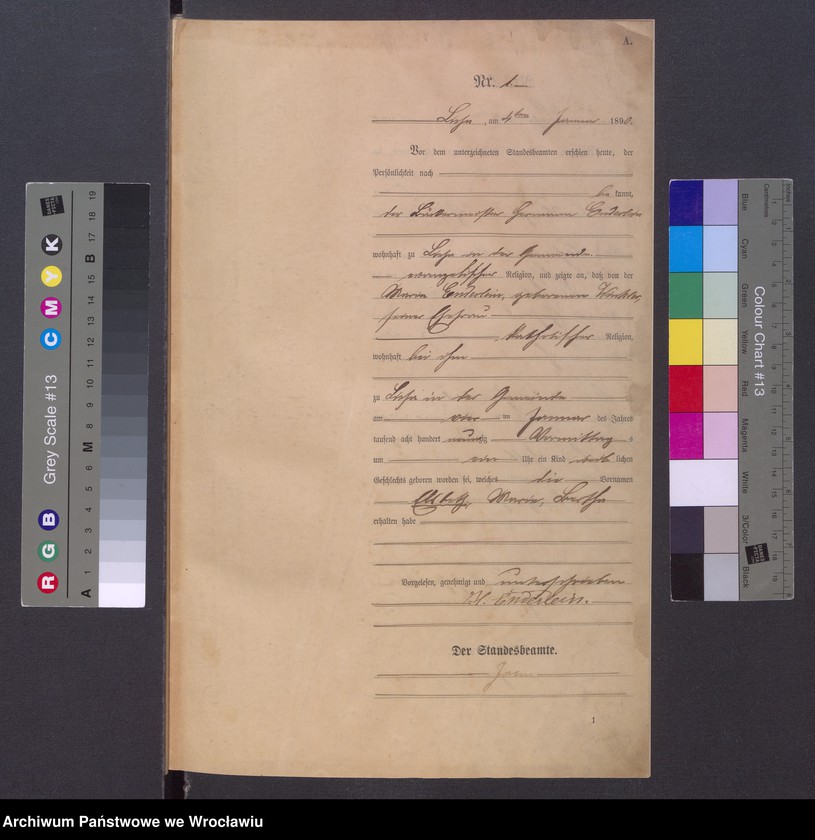 A.
Nr. 1.
am 4ten Januar 1890.
Vor dem unterzeichneten Standesbeamten erschien heute, der
Persönlichkeit nach
be kannt,
der Hermann Enderlein
wohnhaft zu in der Gemeinde
evangelischer Religion, und zeigte an, daß von der
Maria Enderlein, geborenen
seiner Ehefrau
katholischer Religion,
wohnhaft bei ihm
zu in der Gemeinde
am ten Januar des Jahres
tausend acht hundert neunzig Vormittag s
um Uhr ein Kind weib lichen
Geschlechts geboren worden sei, welches die Vornamen
Maria, Bertha
erhalten habe
Vorgelesen, genehmigt und unterschrieben
H. Enderlein.
Der Standesbeamte.
1
Grey Scale #13
R G B C M Y K
A 1 2 3 4 5 6 M 8 9 10 11 12 13 14 15 B 17 18 19
Colour Chart #13
Blue
Cyan
Green
Yellow
Red
Magenta
White
3/Color
Black
Centimetres
Inches
Archiwum Państwowe we Wrocławiu